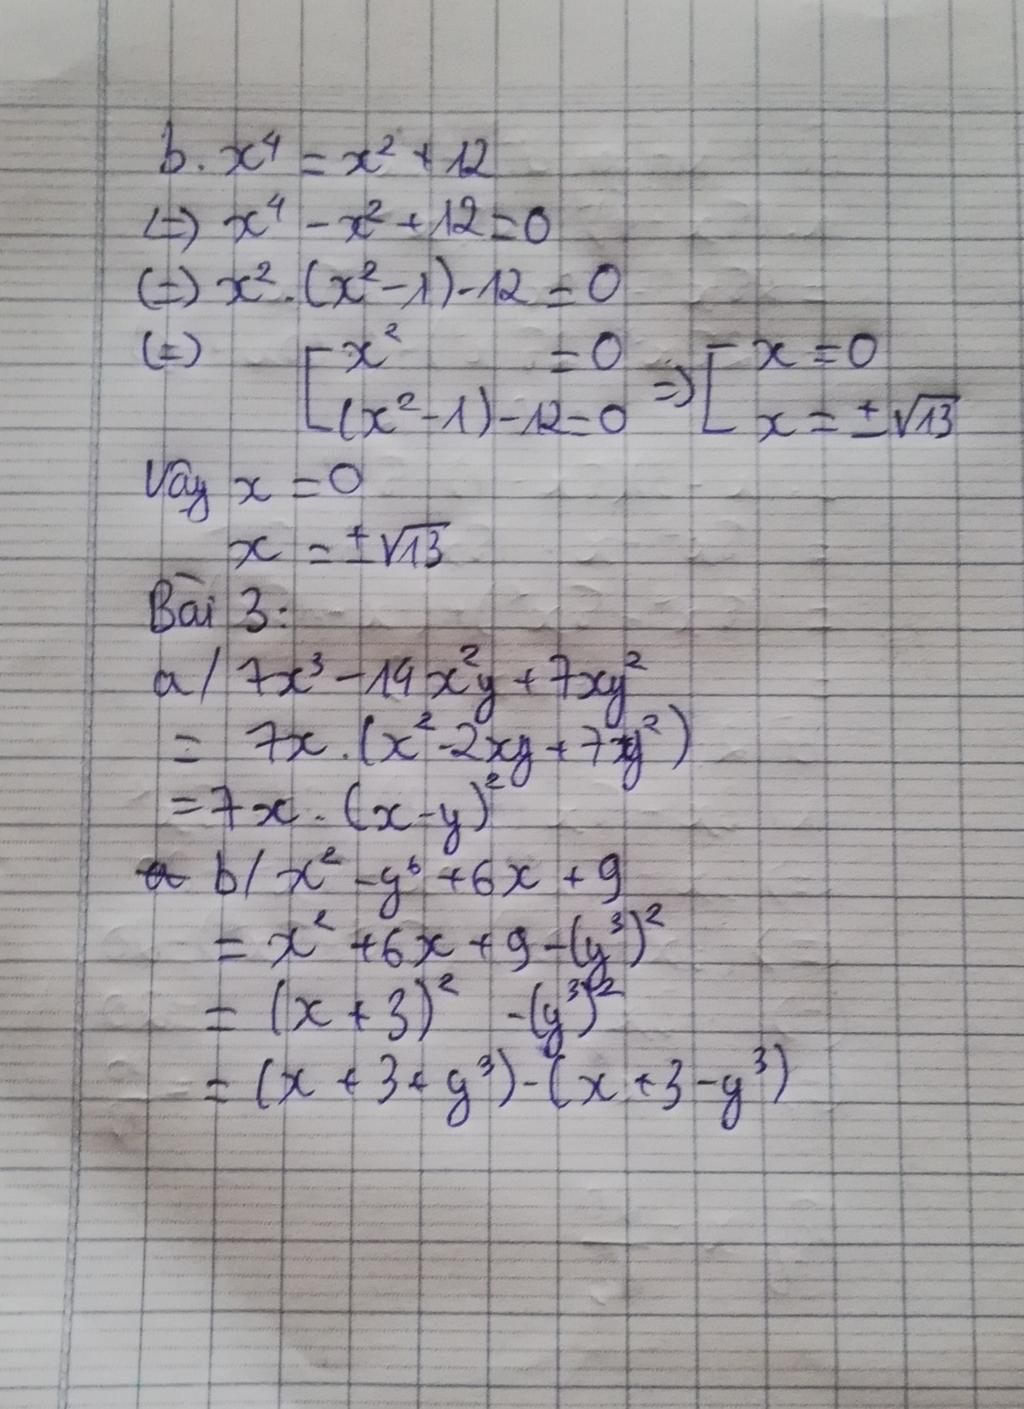 b. x⁴ = x² + 12
(=) x⁴ - x² + 12 = 0
(=) x² . (x² - 1) - 12 = 0
(=) [ x² = 0 => [ x = 0
(x² - 1) - 12 = 0 x = ± √13
Vậy x = 0
x = ± √13
Bài 3:
a/ 7x³ - 14x²y + 7xy²
= 7x . (x² - 2xy + 7xy²)
= 7x . (x - y)²
b/ x² - y⁶ + 6x + 9
= x² + 6x + 9 - (y³)²
= (x + 3)² - (y³)²
= (x + 3 + y³) - (x + 3 - y³)